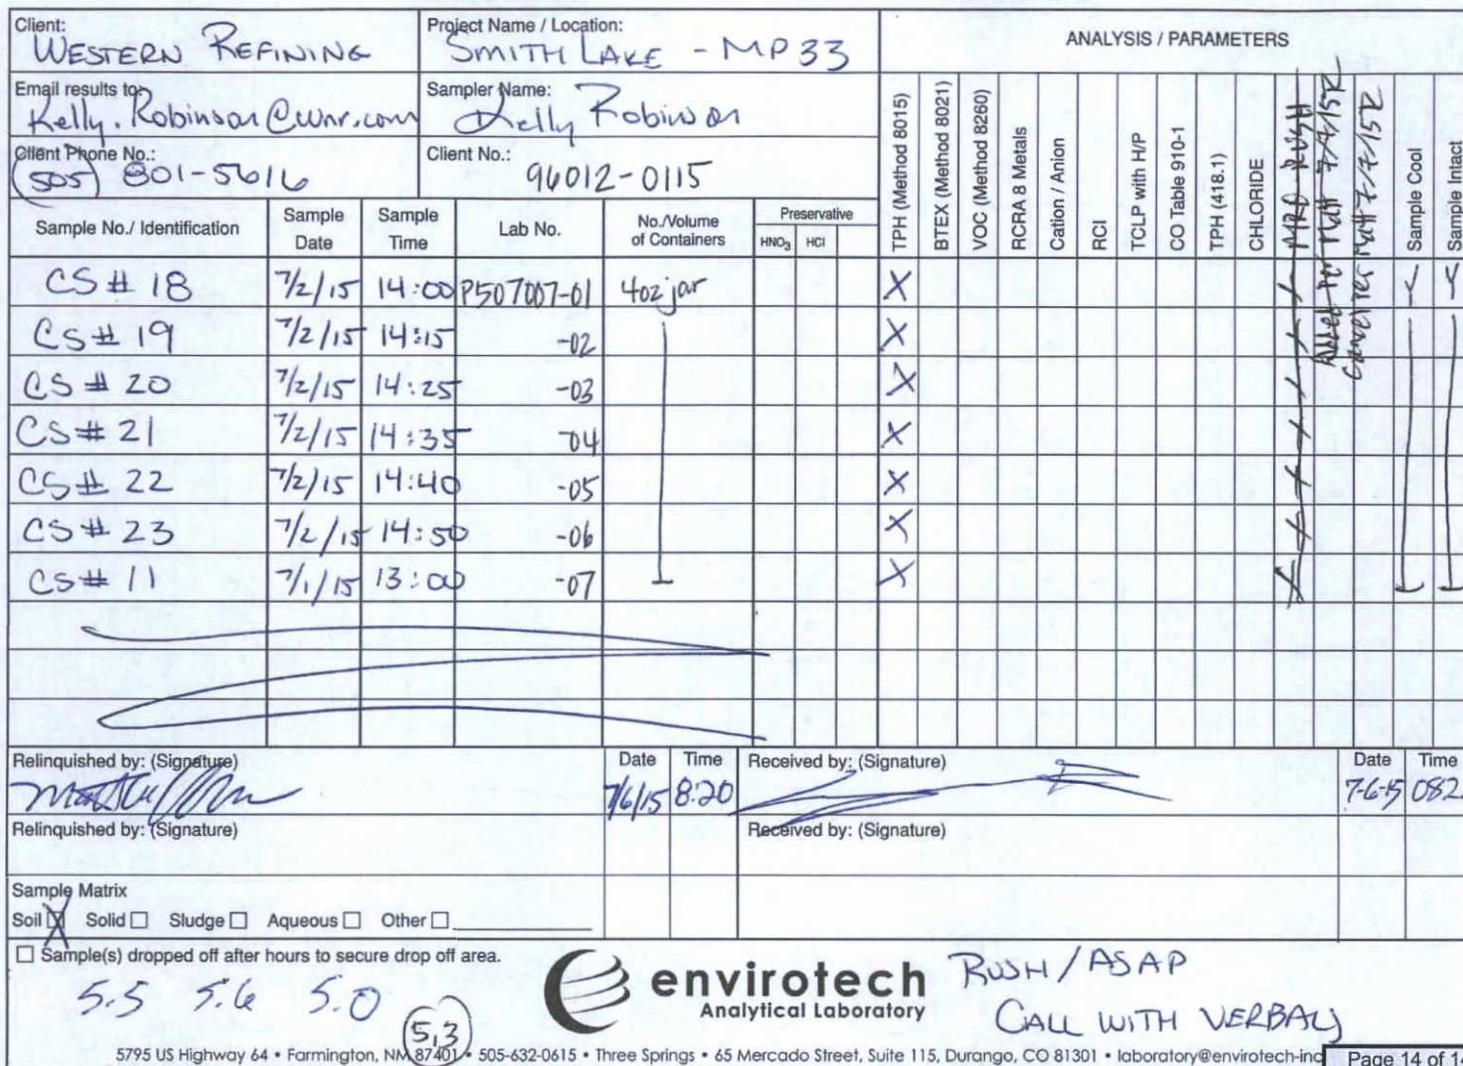 Client:
WESTERN REFINING
Project Name / Location:
SMITH LAKE - MP33
ANALYSIS / PARAMETERS
Email results to:
Kelly.Robinson@wnr.com
Sampler Name:
Kelly Robinson
Client Phone No.:
(505) 801-5616
Client No.:
96012-0115
Sample No./ Identification
Sample Date
Sample Time
Lab No.
No./Volume of Containers
Preservative
HNO₃ HCl
TPH (Method 8015)
BTEX (Method 8021)
VOC (Method 8260)
RCRA 8 Metals
Cation / Anion
RCI
TCLP with H/P
CO Table 910-1
TPH (418.1)
CHLORIDE
MRO RUSH
Added per Matt 7/7/15
Cancel per Matt 7/7/15
Sample Cool
Sample Intact
CS # 18 7/2/15 14:00 P507007-01 4oz jar X
CS # 19 7/2/15 14:15 -02 X
CS # 20 7/2/15 14:25 -03 X
CS # 21 7/2/15 14:35 -04 X
CS # 22 7/2/15 14:40 -05 X
CS # 23 7/2/15 14:50 -06 X
CS # 11 7/1/15 13:00 -07 X
Relinquished by: (Signature)
Date
7/6/15
Time
8:20
Received by: (Signature)
Date
7-6-15
Time
082
Relinquished by: (Signature)
Received by: (Signature)
Sample Matrix
Soil Solid Sludge Aqueous Other
Sample(s) dropped off after hours to secure drop off area.
5.5 5.6 5.0
5.3
envirotech
Analytical Laboratory
RUSH / ASAP
CALL WITH VERBAL
5795 US Highway 64 • Farmington, NM 87401 • 505-632-0615 • Three Springs • 65 Mercado Street, Suite 115, Durango, CO 81301 • laboratory@envirotech-inc
Page 14 of 14